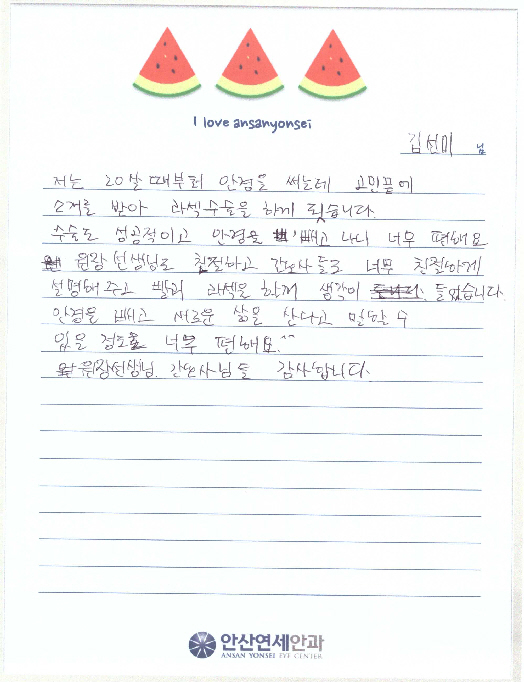 I love ansanyonsei
김선미 님
저는 20살때부터 안경을 썼는데 고민끝에
소개를 받아 라섹수술을 하게 됫습니다.
수술도 성공적이고 안경을 빼고 나니 너무 편해요
원장선생님도 친절하고 간호사들도 너무 친절하게
설명해주고 빨리 라섹을 할껄 생각이 들었습니다.
안경을 빼고 새로운 삶을 산다고 말할 수
있을 정도로 너무 편해요.^^
원장선생님, 간호사님들 감사합니다.
안산연세안과
ANSAN YONSEI EYE CENTER